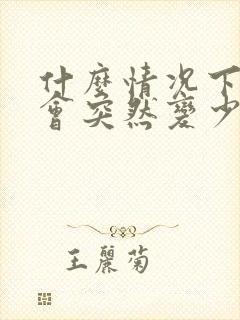 什麼情况下
會突然變少
王麗菊